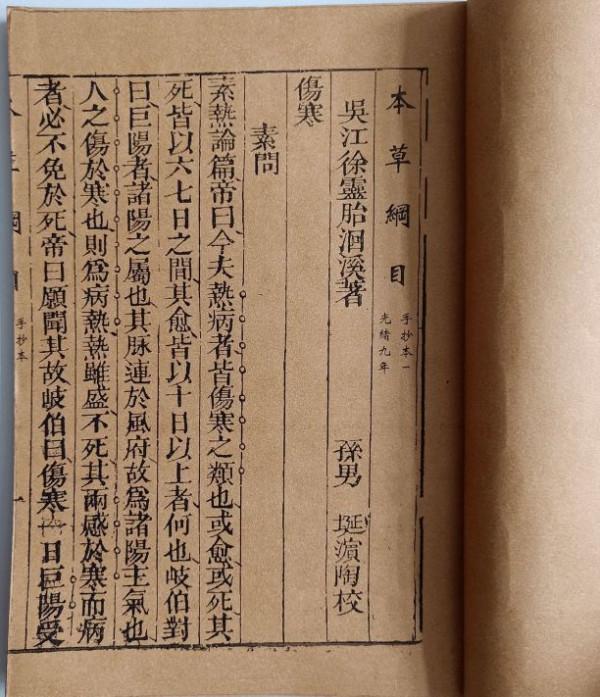 本草綱目
手抄本一
光緒九年
吳江徐靈胎洄溪著
孫男 埏濵陶校
傷寒
素問
素熱論篇帝曰今夫熱病者皆傷寒之類也或愈或死其
死皆以六七日之間其愈皆以十日以上者何也岐伯對
曰巨陽者諸陽之屬也其脉連於風府故爲諸陽主氣也
人之傷於寒也則爲病熱熱雖盛不死其兩感於寒而病
者必不免於死帝曰願聞其故岐伯曰傷寒一日巨陽受
手抄本
一